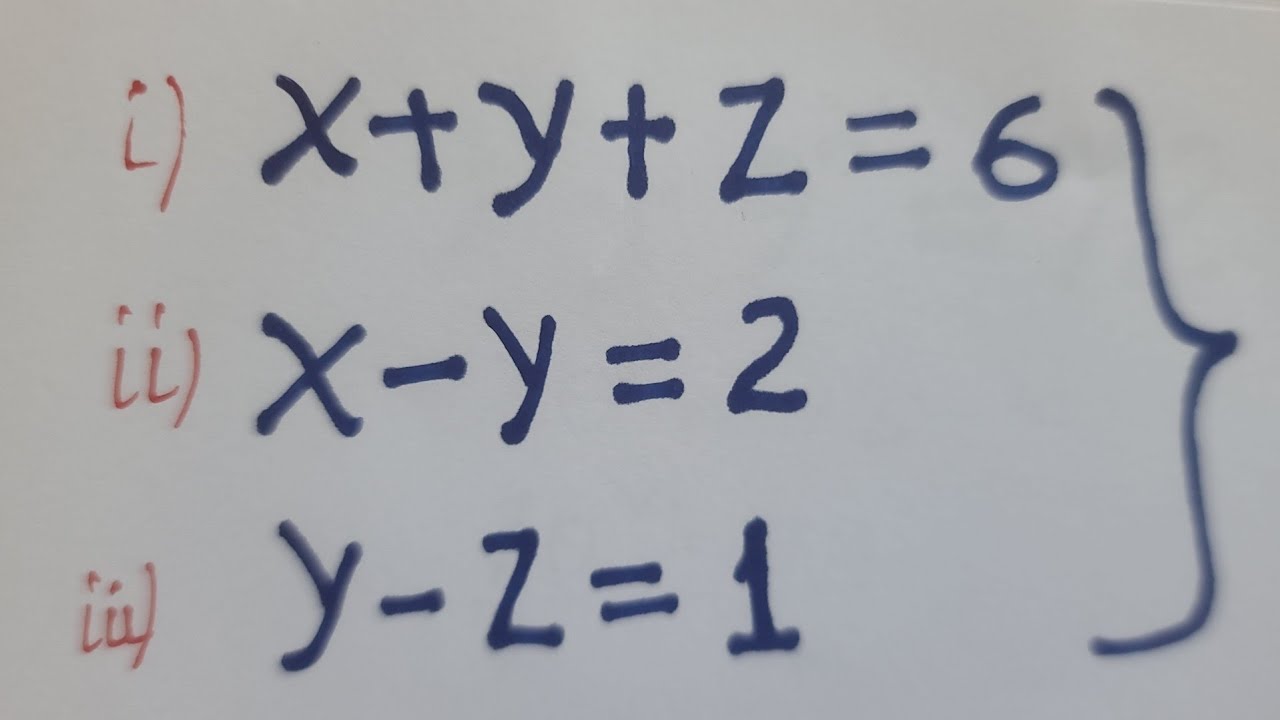 i) x+y+z=6
ii) x-y=2
iii) y-z=1